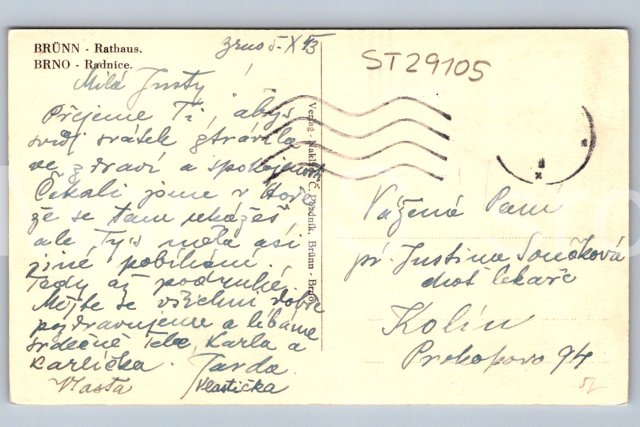 BRÜNN - Rathaus.
BRNO - Radnice.
Brno 5. X 43
ST29105
Milá Justy!
Přejeme Ti, abys
svůj svátek ztrávila
ve zdraví a spokojnosti
Čekali jsme v
že se tam ukážeš
ale Tys měla asi
jiné pobíhání.
Tedy až podruhé.
Mějte se všichni dobře
pozdravujeme a líbáme
srdečně Tebe, Karla a
Karlíčka. Jarda
Vlasta Vlastička
Verlag - Nakl. Č. Brünn - Brno
Vážená Paní
pí. Justina Součková
choť lékaře
Kolín
Prokopova 94